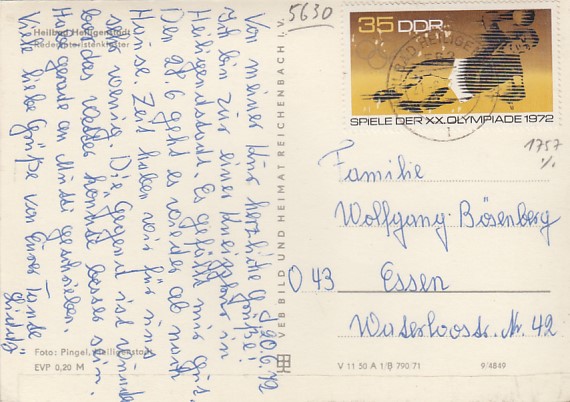 Heilbad Heiligenstadt
Redemptoristenkloster
20.6.72
Von meiner Kur herzliche Grüße!
Ich bin zur einer Kneippkur in
Heiligenstadt. Es gefällt mir gut.
Der 28.6 geht es wieder ab nach
Hause. Zeit haben wir für uns
sehr wenig. Die Gegend ist wunder
bar, das Wetter könnte besser sein.
Habe gerade an Mutti geschrieben.
Viele liebe Grüße von Eurer Tante
Foto: Pingel, Heiligenstadt
EVP 0,20 M
VEB BILD UND HEIMAT REICHENBACH I. V.
5630
35 DDR
SPIELE DER XX. OLYMPIADE 1972
1757
Familie
Wolfgang Bösenberg
O 43 Essen
Waterloostr. Nr. 42
V 11 50 A 1/B 790/71 9/4849